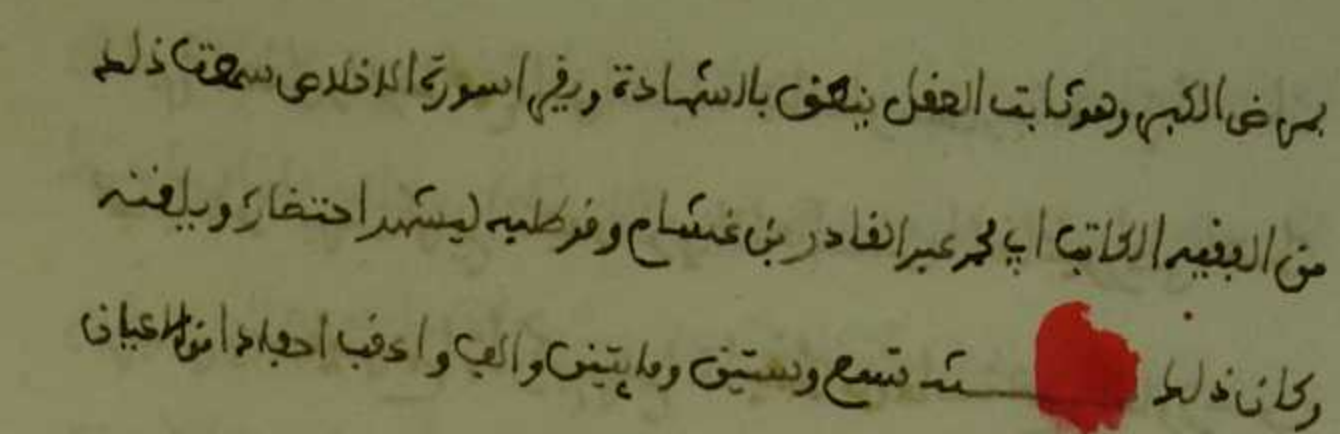 بمرض الكبر وهو ثابت العقل ينطق بالشهادة ويقرأ سورة الاخلاص سمعت ذلك
من الفقيه الكاتب ابي محمد عبد القادر بن غشام وقد طلبه ليشهد احتضاره ويلقنه
وكان ذلك سنة تسع وستين ومايتين والف واعقب احفادا من الاعيان